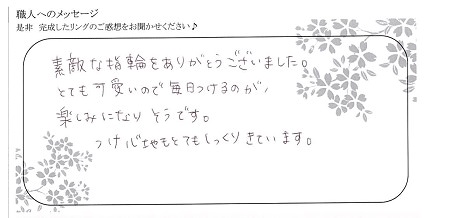 職人へのメッセージ
是非 完成したリングのご感想をお聞かせください♪
素敵な指輪をありがとうございました。
とても可愛いので毎日つけるのが、
楽しみになりそうです。
つけ心地もとてもしっくりきています。